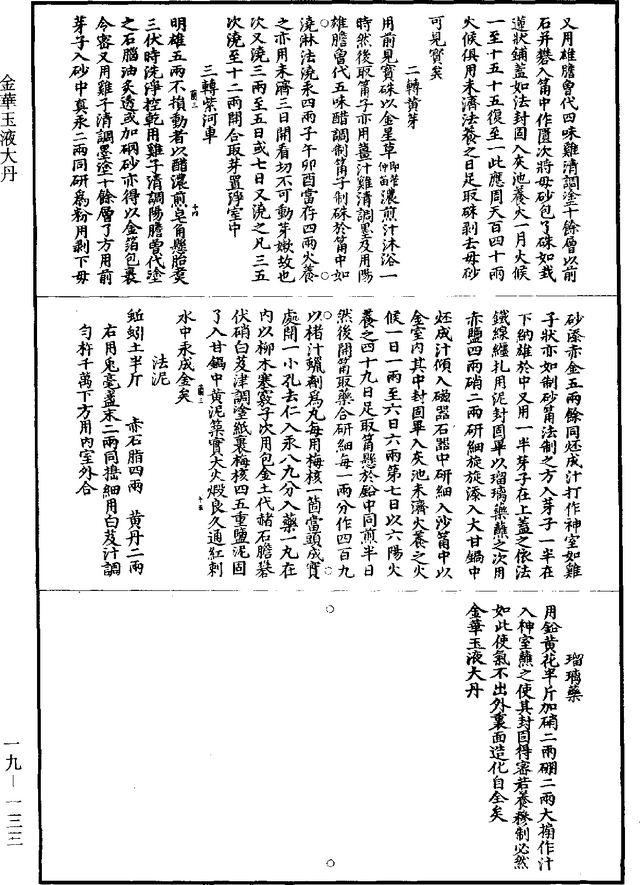 又用雄膽曾代四味雞清調塗十餘層以前
石并礬入筩中作匱次將母砂包了硃如栽
蓮狀鋪蓋如法封固入灰池養火一月火候
一至十五十五復至一此應周天百四十兩
火候俱用未濟法養之日足取硃剥去母砂
可見寶矣
二轉黄芽
用前見寶硃以金星草濃煎汁沐浴一
時然後取筩子亦用薑汁雞清調墨及用陽
雄膽曾代五味醋調制筩子制硃於筩中如
澆淋法澆汞四兩子午卯酉當存四兩火養
之亦用未濟三日開看切不可動芽嫩故也
次又澆三兩至五日或七日又澆之凡三五
次澆至十二兩開合取芽置淨室中
三轉紫河車
明雄五兩不損動者以醋濃煎皂角懸胎煑
三伏時洗淨控乾用雞子清調陽膽曾代塗
之石腦油炙透或加硇砂亦得以金箔包裹
令密又用雞子清調墨塗十餘層了方用前
芽子入砂中真汞二兩同研爲粉用剩下母
砂添赤金五兩餘同煑成汁打作神室如雞
子狀亦如制砂筩法制之方入芽子一半在
下納雄於中又用一半芽子在上蓋之依法
鐵線纏扎用泥封固畢以瑠璃藥蘸之次用
赤鹽四兩硝二兩研細旋旋添入大甘鍋中
煑成汁傾入磁器石器中研細入沙筩中以
金室内其中封固畢入灰池未濟火養之火
候一日一兩至六日六兩第七日以六陽火
養之四十九日足取筩懸於鉛中同煎半日
然後開筩取藥合研細每一兩分作四百九
以楮汁蝋劑爲丸每用梅核一箇當頭成寳
處開一小孔去仁入汞八九分入藥一丸在
内以柳木塞竅子次用包金土代赭石膽礬
伏硝白芨津調塗紙裹梅核四五重鹽泥固
了入甘鍋中黄泥築實大火煅良久通紅剌
水中汞成金矣
法泥
蚯蚓土半斤　赤石脂四兩　黄丹二兩
右用兎毫盞末二兩同擣細用白芨汁調
匀杵千萬下方用内室外合
瑠璃藥
用鉛黄花半斤加硝二兩硼二兩大搧作汁
入神室蘸之使其封固得審若養糁制必然
如此使氣不出外裏面造化自全矣
金華玉液大丹
金華玉液大丹
一九—一三三